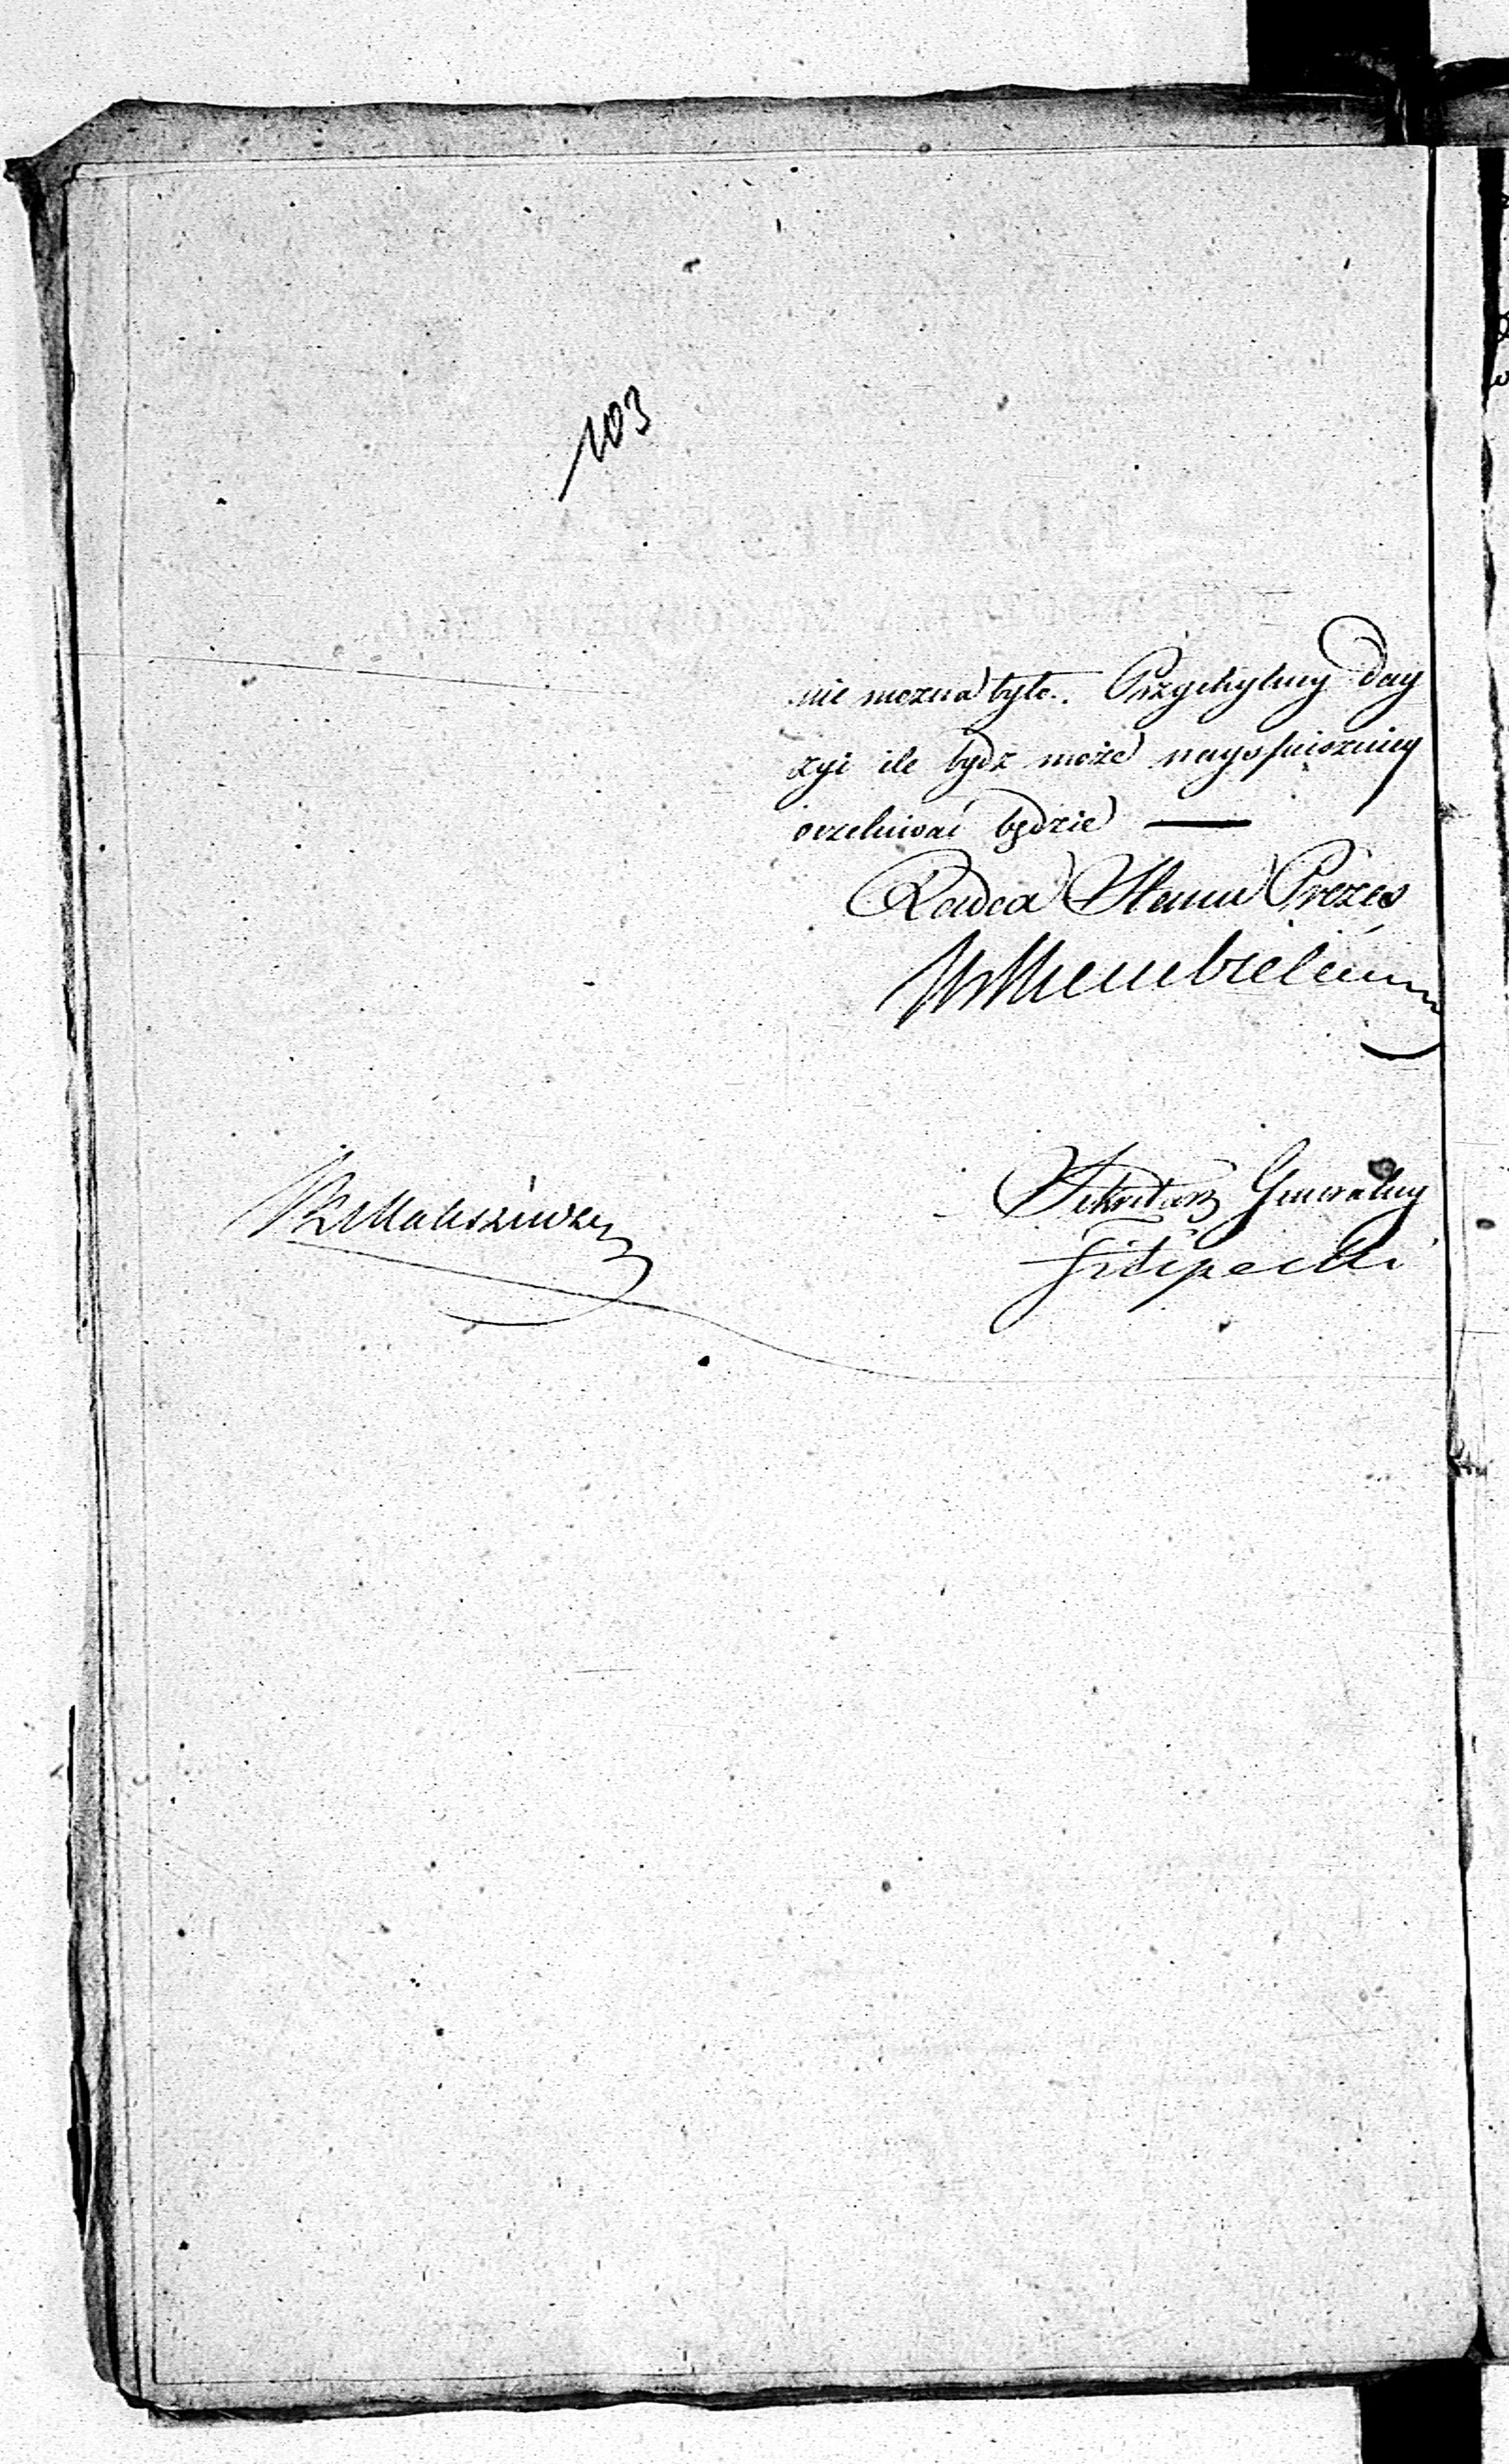 103
nie można było. Przychylney Decy
zyi ile bydź może nayśpieszniey
oczekiwać będzie —
Radca Stanu Prezes
Rembieliński
Sekretarz Generalny
Filipecki